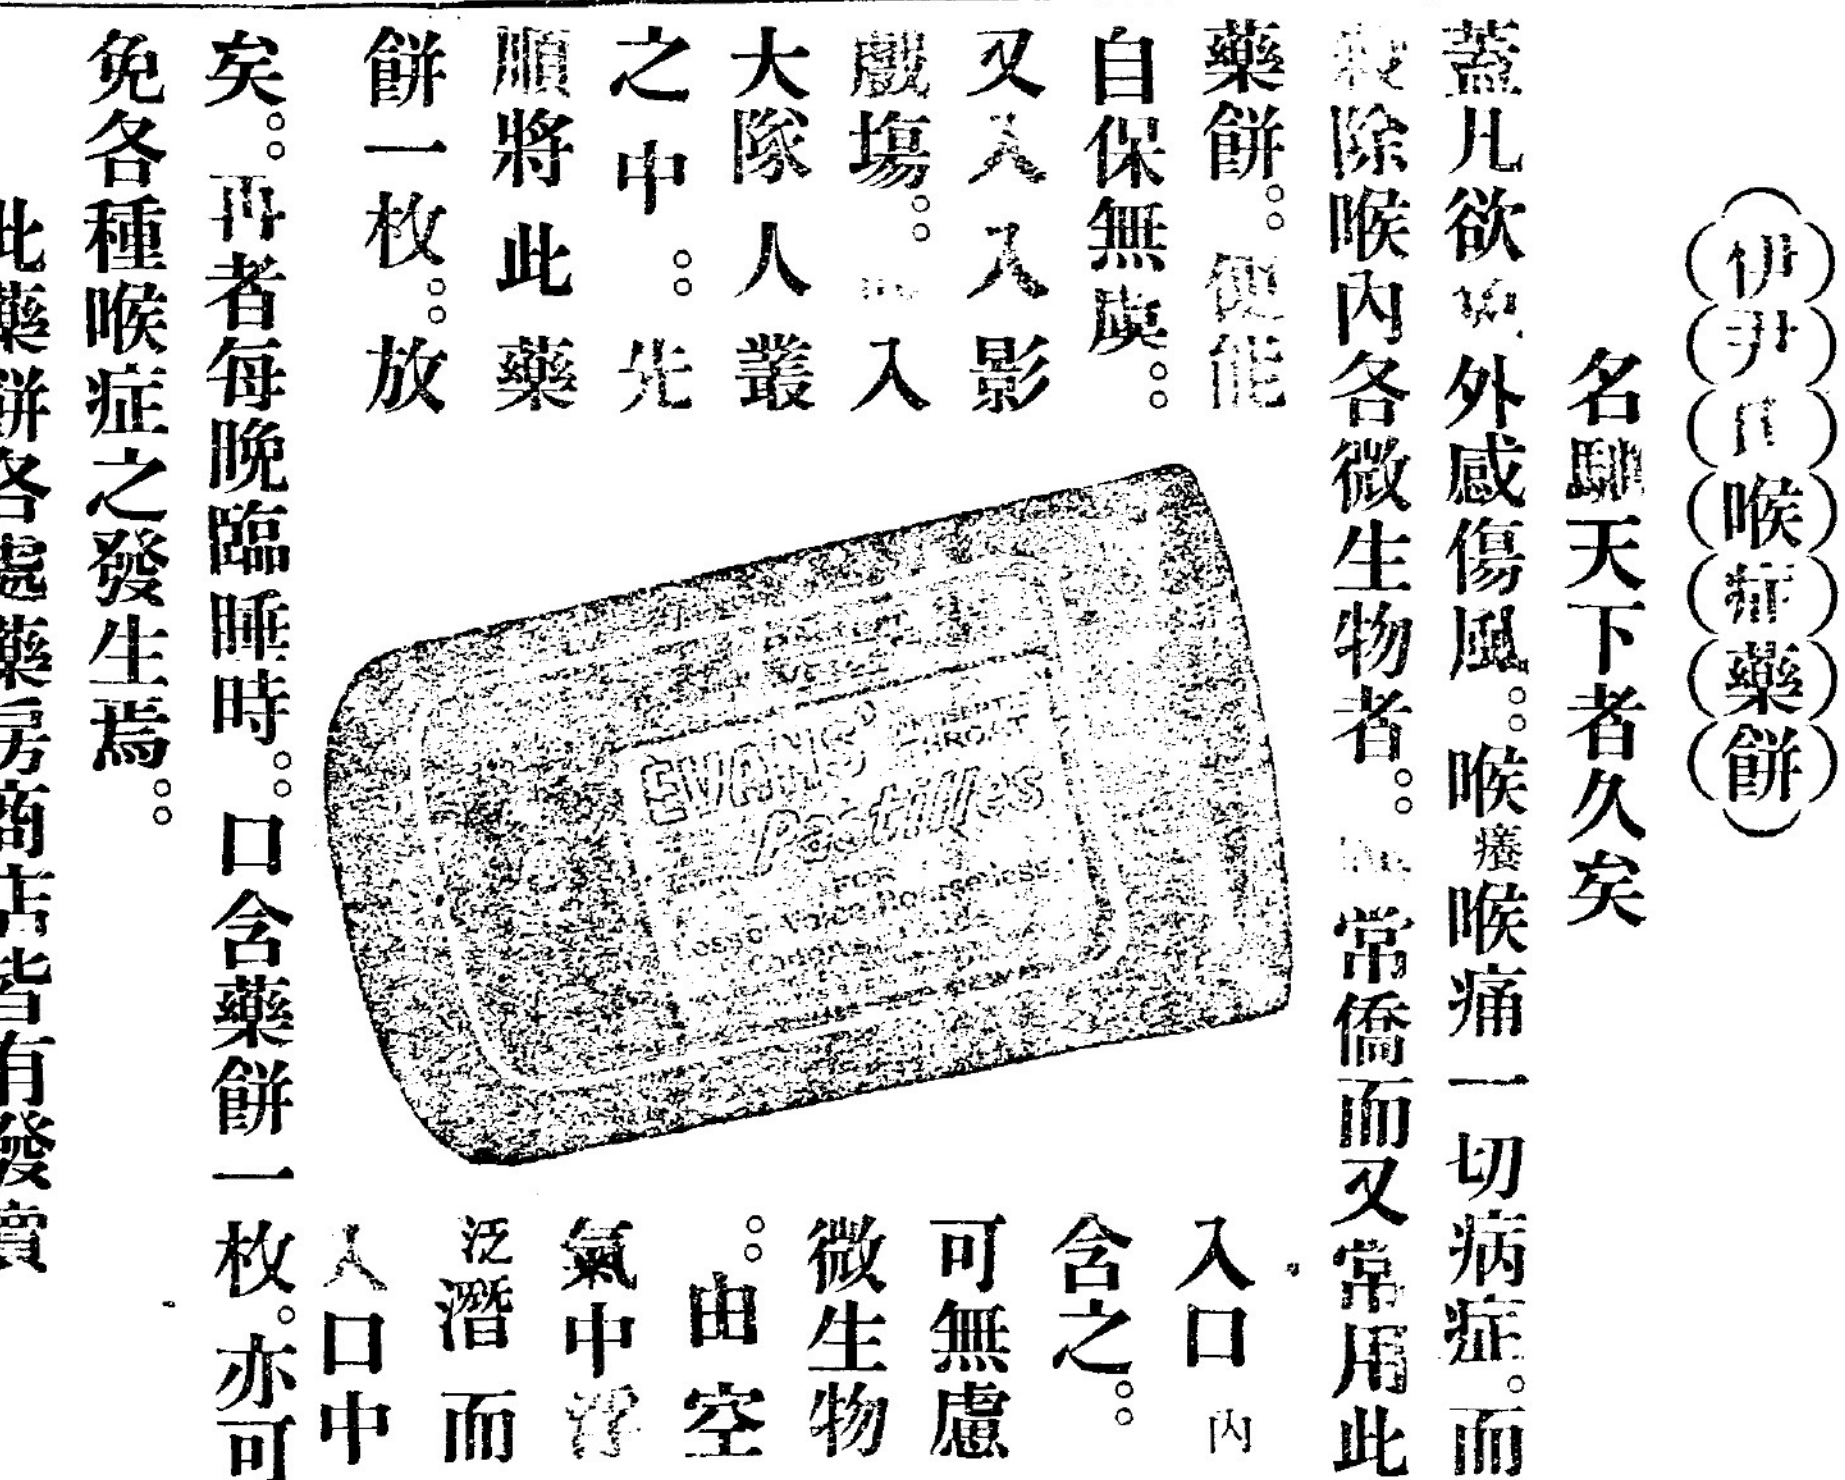 伊尹氏喉症藥餅
名馳天下者久矣
蓋凡欲免外感傷風。喉癢喉痛一切病症。而
殺除喉內各微生物者。常備而又常用此
藥餅。便能
自保無虞。
又入入影
戲塲。入
大隊人叢
之中。先
順將此藥
餅一枚。放
入口內
含之。
可無慮
微生物
。由空
氣中浮
泛潛而
入口中
矣。再者每晚臨睡時。口含藥餅一枚。亦可
免各種喉症之發生焉。
此藥餅各處藥房商店皆有發賣
EVANS'
ANTISEPTIC
THROAT
Pastilles
FOR
Loss of Voice, Hoarseness